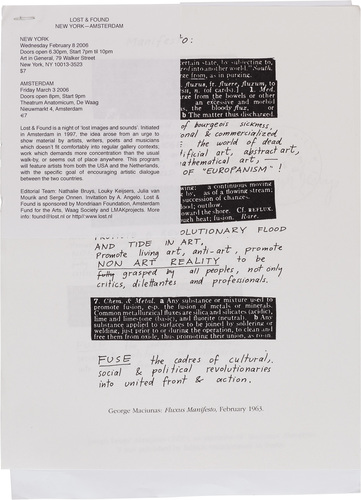 LOST & FOUND
NEW YORK – AMSTERDAM
NEW YORK
Wednesday February 8 2006
Doors open 6.30pm; Start 7pm til 10pm
Art in General, 79 Walker Street
New York, NY 10013-3523
$7
AMSTERDAM
Friday March 3 2006
Doors open 8pm, Start 9pm
Theatrum Anatomicum, De Waag
Nieuwmarkt 4, Amsterdam
€7
Lost & Found is a night of 'lost images and sounds'. Initiated
in Amsterdam in 1997, the idea arose from an urge to
show material by artists, writers, poets and musicians
which doesn't fit comfortably into regular gallery contexts;
work which demands more concentration than the usual
walk-by, or seems out of place anywhere. This program
will feature artists from both the USA and the Netherlands,
with the specific goal of encouraging artistic dialogue
between the two countries.
Editorial Team: Nathalie Bruys, Louky Keijsers, Julia van
Mourik and Serge Onnen. Invitation by A. Angelo. Lost &
Found is sponsored by Mondriaan Foundation, Amsterdam
Fund for the Arts, Waag Society and LMAKprojects. More
info: found@lost.nl or http//www.lost.nl
TO:
ertain state, by subjecting to,
red into another world." South.
rge from, as in purging.
fluxus, fr. fluere, fluxum, to
st, n. (of cards).] 1. Med.
ree from the bowels or other
an excessive and morbid
is, the bloody flux, or
b The matter thus discharged.
of bourgeois sickness,
onal & commercialized
: the world of dead
tificial art, abstract art,
athematical art, —
OF "EUROPANISM" !
wing; a continuous moving
by, as of a flowing stream;
succession of changes.
ood; outflow.
toward the shore. Cf. REFLUX.
uch heat; fusion. Rare.
OLUTIONARY FLOOD
AND TIDE IN ART,
Promote living art, anti-art, promote
NON ART REALITY to be
fully grasped by all peoples, not only
critics, dilettantes and professionals.
7. Chem. & Metal. a Any substance or mixture used to
promote fusion, esp. the fusion of metals or minerals.
Common metallurgical fluxes are silica and silicates (acidic),
lime and limestone (basic), and fluorite (neutral). b Any
substance applied to surfaces to be joined by soldering or
welding, just prior to or during the operation, to clean and
free them from oxide, thus promoting their union, as rosin.
FUSE the cadres of cultural,
social & political revolutionaries
into united front & action.
George Maciunas: Fluxus Manifesto, February 1963.